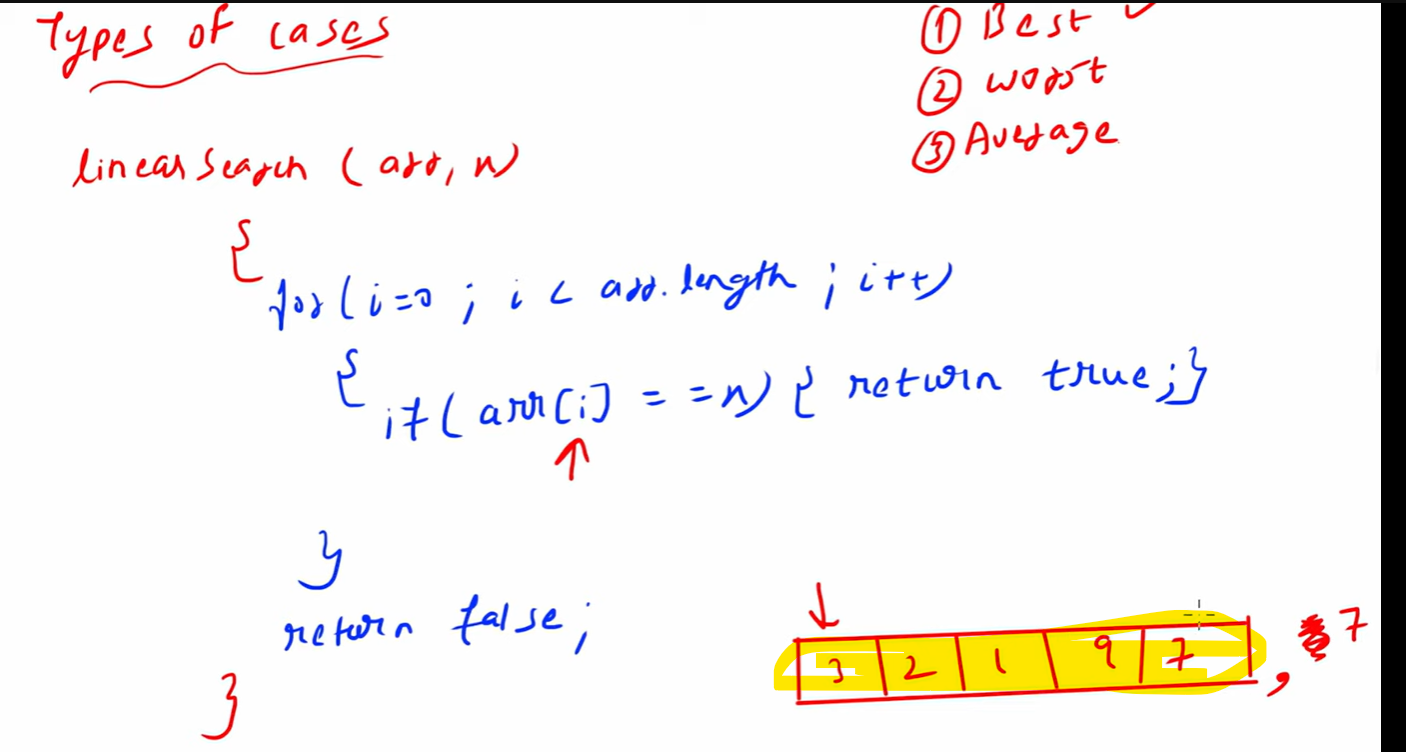 Types of cases
① Best ✓
② Worst
③ Average
linearSearch (arr, n)
{
for(i=0 ; i < arr.length ; i++)
{
if(arr[i] = =n) { return true;}
}
return false;
}
3 2 1 9 7 , 7